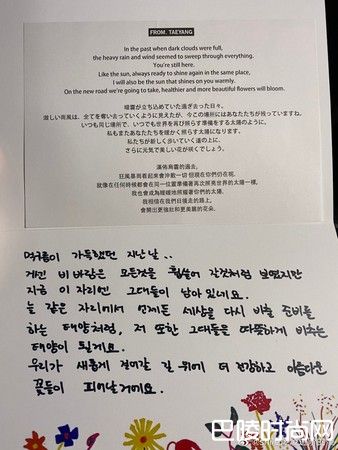 FROM. TAEYANG
In the past when dark clouds were full,
the heavy rain and wind seemed to sweep through everything.
You're still here.
Like the sun, always ready to shine again in the same place,
I will also be the sun that shines on you warmly.
On the new road we're going to take, healthier and more beautiful flowers will bloom.
暗雲が立ち込めていた過ぎ去った日々。
激しい雨風は、全てを奪い去っていくように見えたが、今この場所にはあなたたちが残っていますね。
いつも同じ場所で、いつでも世界を再び照らす準備をする太陽のように、
私もまたあなたたちを暖かく照らす太陽になります。
私たちが新しく歩いていく道の上に、
さらに元気で美しい花が咲くでしょう。
滿佈烏雲的過去,
狂風暴雨看起來會沖散一切 但現在你們仍在呢.
就像在任何時候都會在同一位置準備著再次照亮世界的太陽一樣,
我也會成為暖暖地照耀著你們的太陽.
我相信在我們日後走的路上,
會開出更強壯和更美麗的花朵.
먹구름이 가득했던 지난날..
거센 비바람은 모든것을 휩쓸어 갈것처럼 보였지만
지금 이 자리엔 그대들이 남아있네요.
늘 같은 자리에서 언제든 세상을 다시 비출 준비를
하는 태양처럼, 저 또한 그대들을 따뜻하게 비추는
태양이 될게요.
우리가 새롭게 걸어갈 길 위에 더 건강하고 아름다운
꽃들이 피어날거에요.
巴陵时尚网